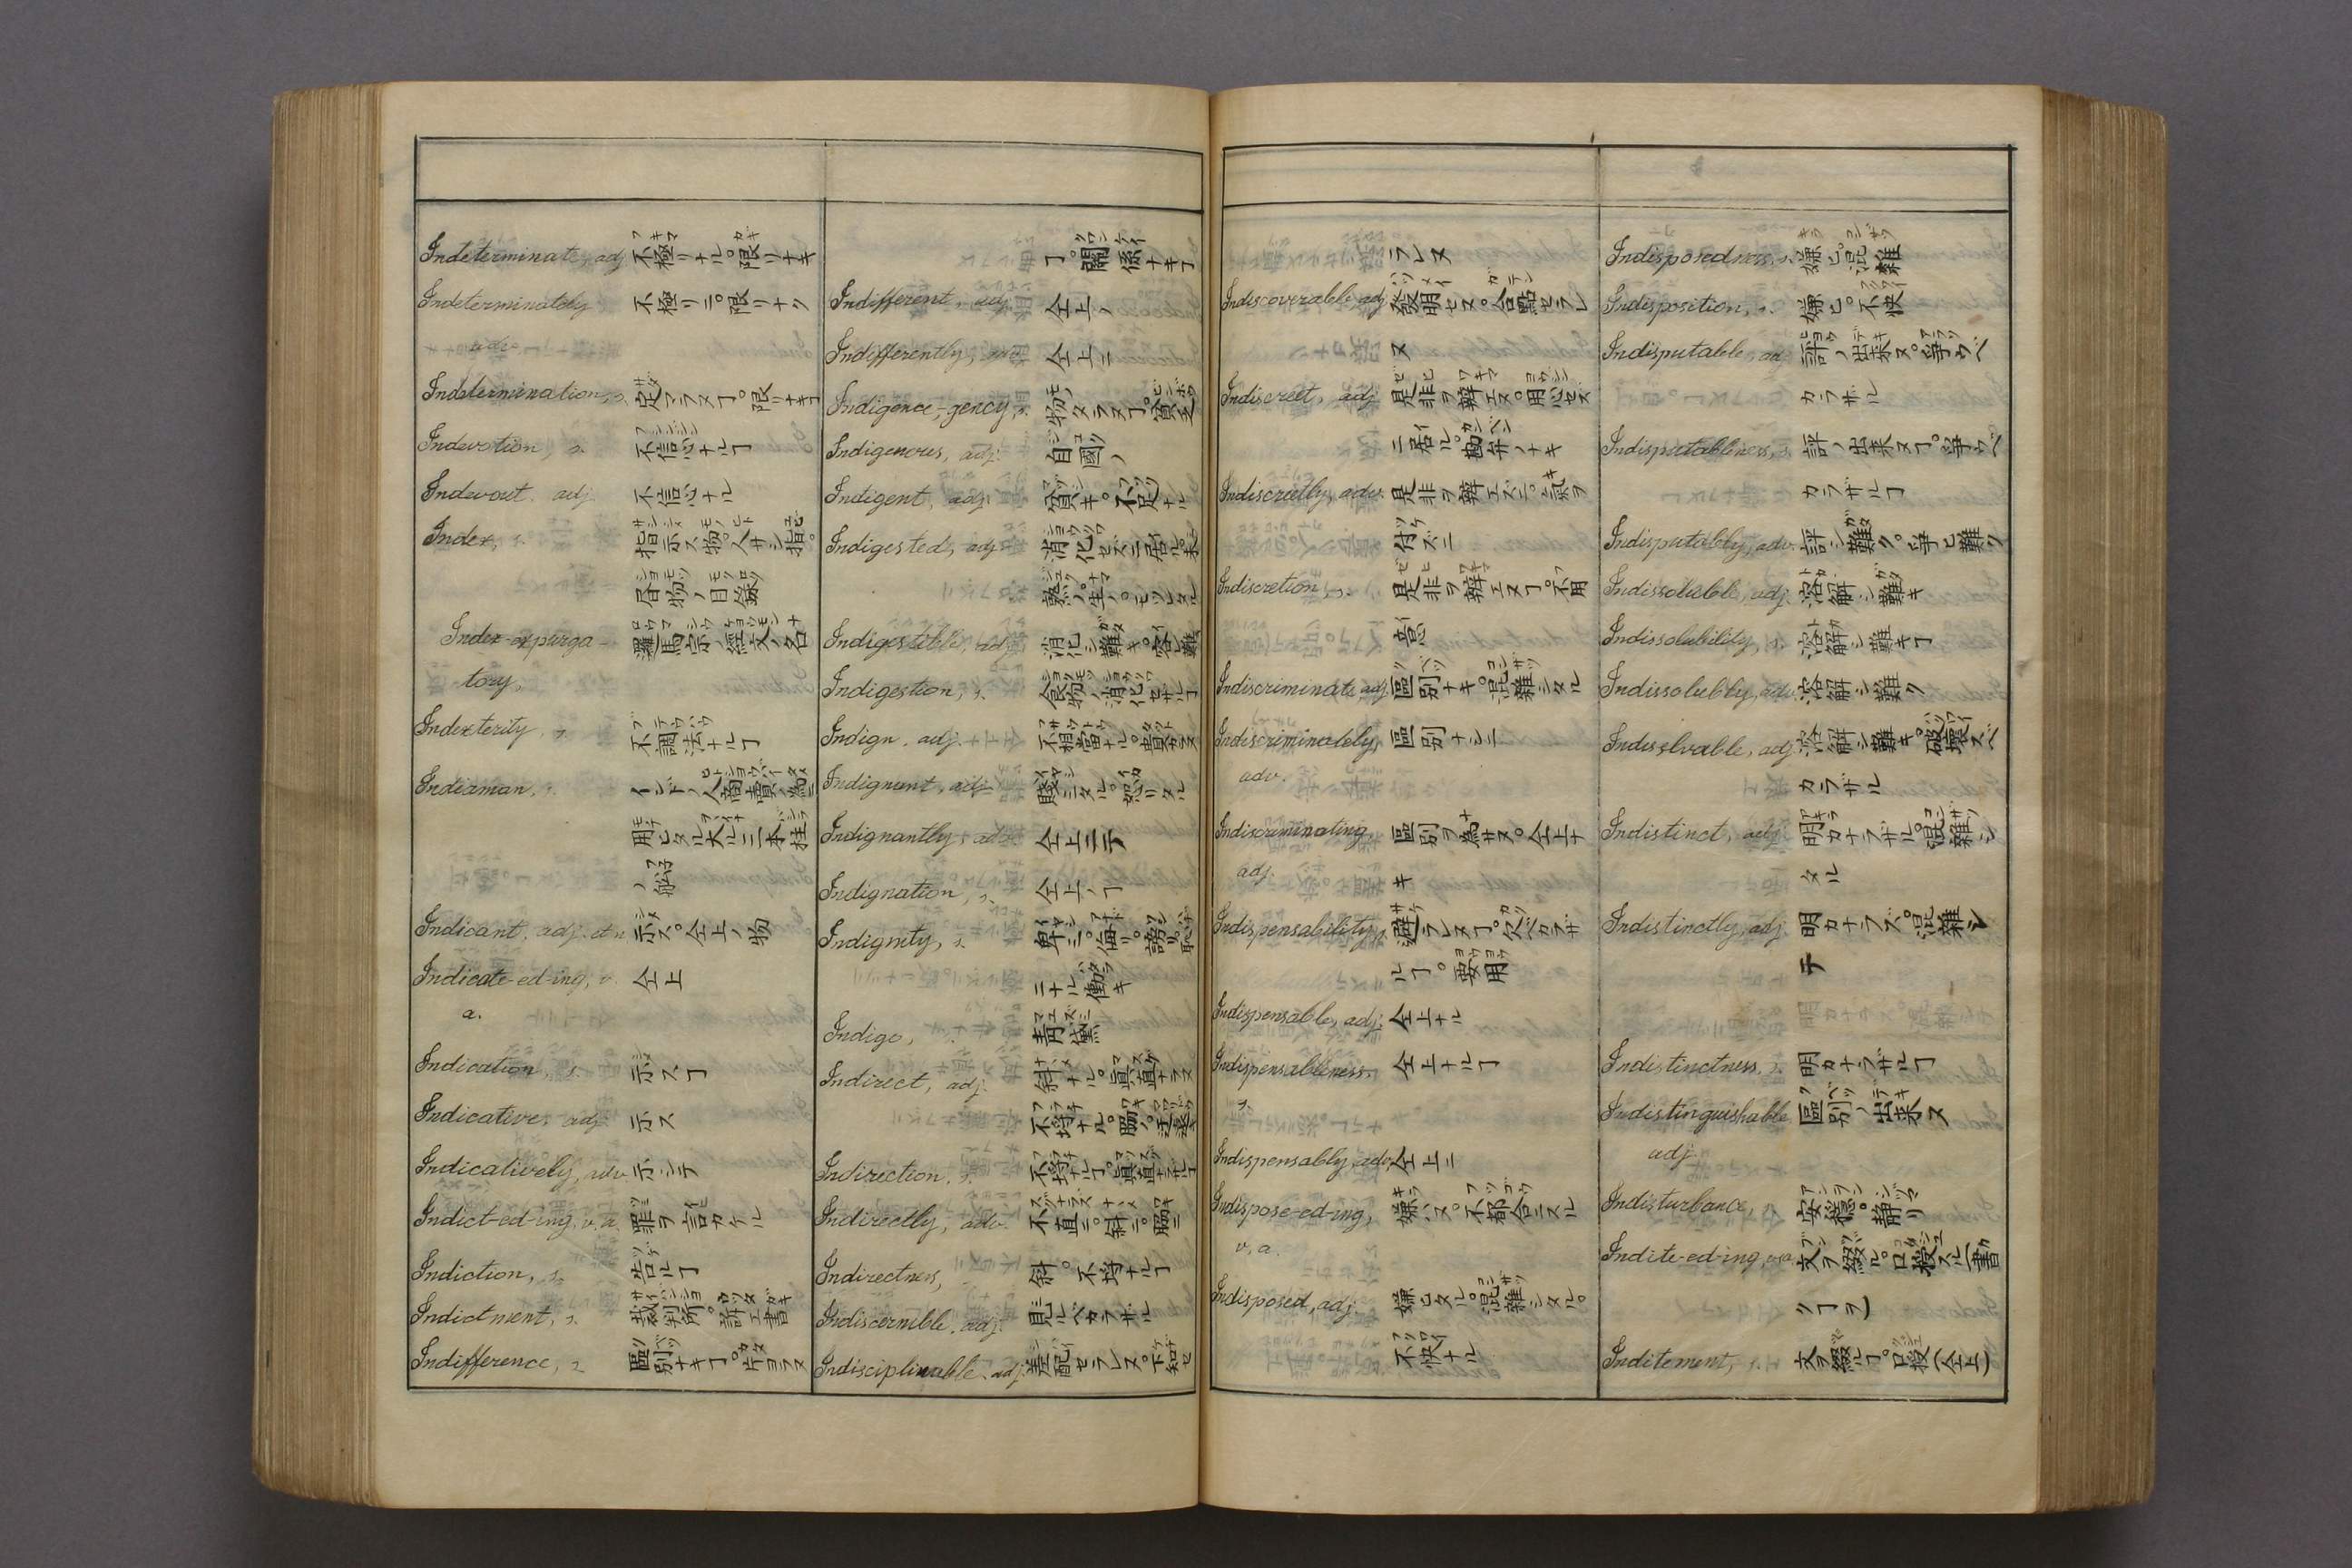 Indeterminate, adj 不極リナル。限リナキ
Indeterminately 不極リニ。限リナク
adv.
Indetermination, s. 定マラヌヿ。限リナキヿ
Indevotion, s. 不信心ナルヿ
Indevout. adj. 不信心ナル
Index, s. 指示ス物。人サシ指。
書物ノ目録
Index-expurga- 羅馬宗ノ經文ノ名
tory,
Indexterity, s. 不調法ナルヿ
Indiaman, s. インドノ人商賣ノ為ニ
用ヒタル大ル三本柱
ノ舩
Indicant. adj. et n 示ス。仝上ノ物
Indicate-ed-ing, v. 仝上
a.
Indication, s. 示スヿ
Indicative, adj. 示ス
Indicatively, adv. 示シテ
Indict-ed-ing, v.a. 罪ヲ言カケル
Indiction, s. 告ルヿ
Indictment, s. 裁判所。訴エ書
Indifference, s 區別ナキヿ。片ヨラヌ
ヿ。關係ナキヿ
Indifferent, adj. 仝上ノ
Indifferently, adv. 仝上ニ
Indigence,-gency, s. 物タラヌヿ。貧乏
Indigenous, adj. 自國ノ
Indigent, adj. 貧キ。不足ナル
Indigested, adj. 消化セズニ居ル。未
熟ノ。生ノ。
Indigestible, adj. 消化シ難キ。
Indigestion, s. 食物ノ消化セザルヿ
Indign. adj. 不相當ナル。
Indignant, adj. 賤ミタル。怒リタル
Indignantly, adv. 仝上ニテ
Indignation, s. 仝上ノヿ
Indignity, s. 卑シミ。侮リ。謗リ。恥
ニナル働キ
Indigo, 青黛
Indirect, adj. 斜ナル。真直ナラヌ
不埒ナル。脇ノ。
Indirection, s. 不埒ナルヿ。真直ナラザルヿ
Indirectly, adv. 不直ニ。斜ニ。脇ニ
Indirectness, 斜。不埒ナルヿ
Indiscernible. adj. 見ルベカラザル
Indisciplinable. adj. 差配セラレヌ。下知セ
ラレヌ
Indiscoverable adj 發明セヌ。合點セラレ
ヌ
Indiscreet, adj 是非ヲ辨エヌ。用心セズ
ニ居ル。勘弁ノナキ
Indiscreetly, adv. 是非ヲ辨エズニ。氣ヲ
付ズニ
Indiscretion, s. 是非ヲ辨エヌヿ。不用
意
Indiscriminate, adj. 區別ナキ。混雜シタル
Indiscriminately, 區別ナシニ
adv.
Indiscriminating, 區別ヲ為サヌ。仝上ナ
adj. キ
Indispensability, s. 避ラレヌヿ。欠ベカラザ
ルヿ。要用
Indispensable, adj. 仝上ナル
Indispensableness. 仝上ナルヿ
s.
Indispensably, adv. 仝上ニ
Indispose-ed-ing, 嫌ハス。不都合ニスル
v. a.
Indisposed, adj. 嫌ヒタル。混雜シタル。
不快ナル
Indisposedness, s. 嫌ヒ。混雜
Indisposition, s. 嫌ヒ。不快
Indisputable, adj 評ノ出来ヌ。爭ウベ
カラザル
Indisputableness, s. 評ノ出来ヌヿ。爭ウベ
カラザルヿ
Indisputably, adv. 評シ難ク。爭ヒ難ク
Indissoluble, adj. 溶解シ難キ
Indissolubility, s. 溶解シ難キヿ
Indissolubly, adv. 溶解シ難ク
Indisslvable, adj. 溶解シ難キ。破壞スベ
カラザル
Indistinct, adj. 明カナラザル。混雜シ
タル
Indistinctly, adj. 明カナラズ。混雜シ
テ
Indistinctness, s. 明カナラザルヿ
Indistinguishable 區別ノ出来ヌ
adj.
Indisturbance, 安穏。靜リ
Indite-ed-ing, v.a. 文ヲ綴ル。口授スル(書
クヿヲ)
Inditement, s. 文ヲ綴ルヿ。口授(仝上)